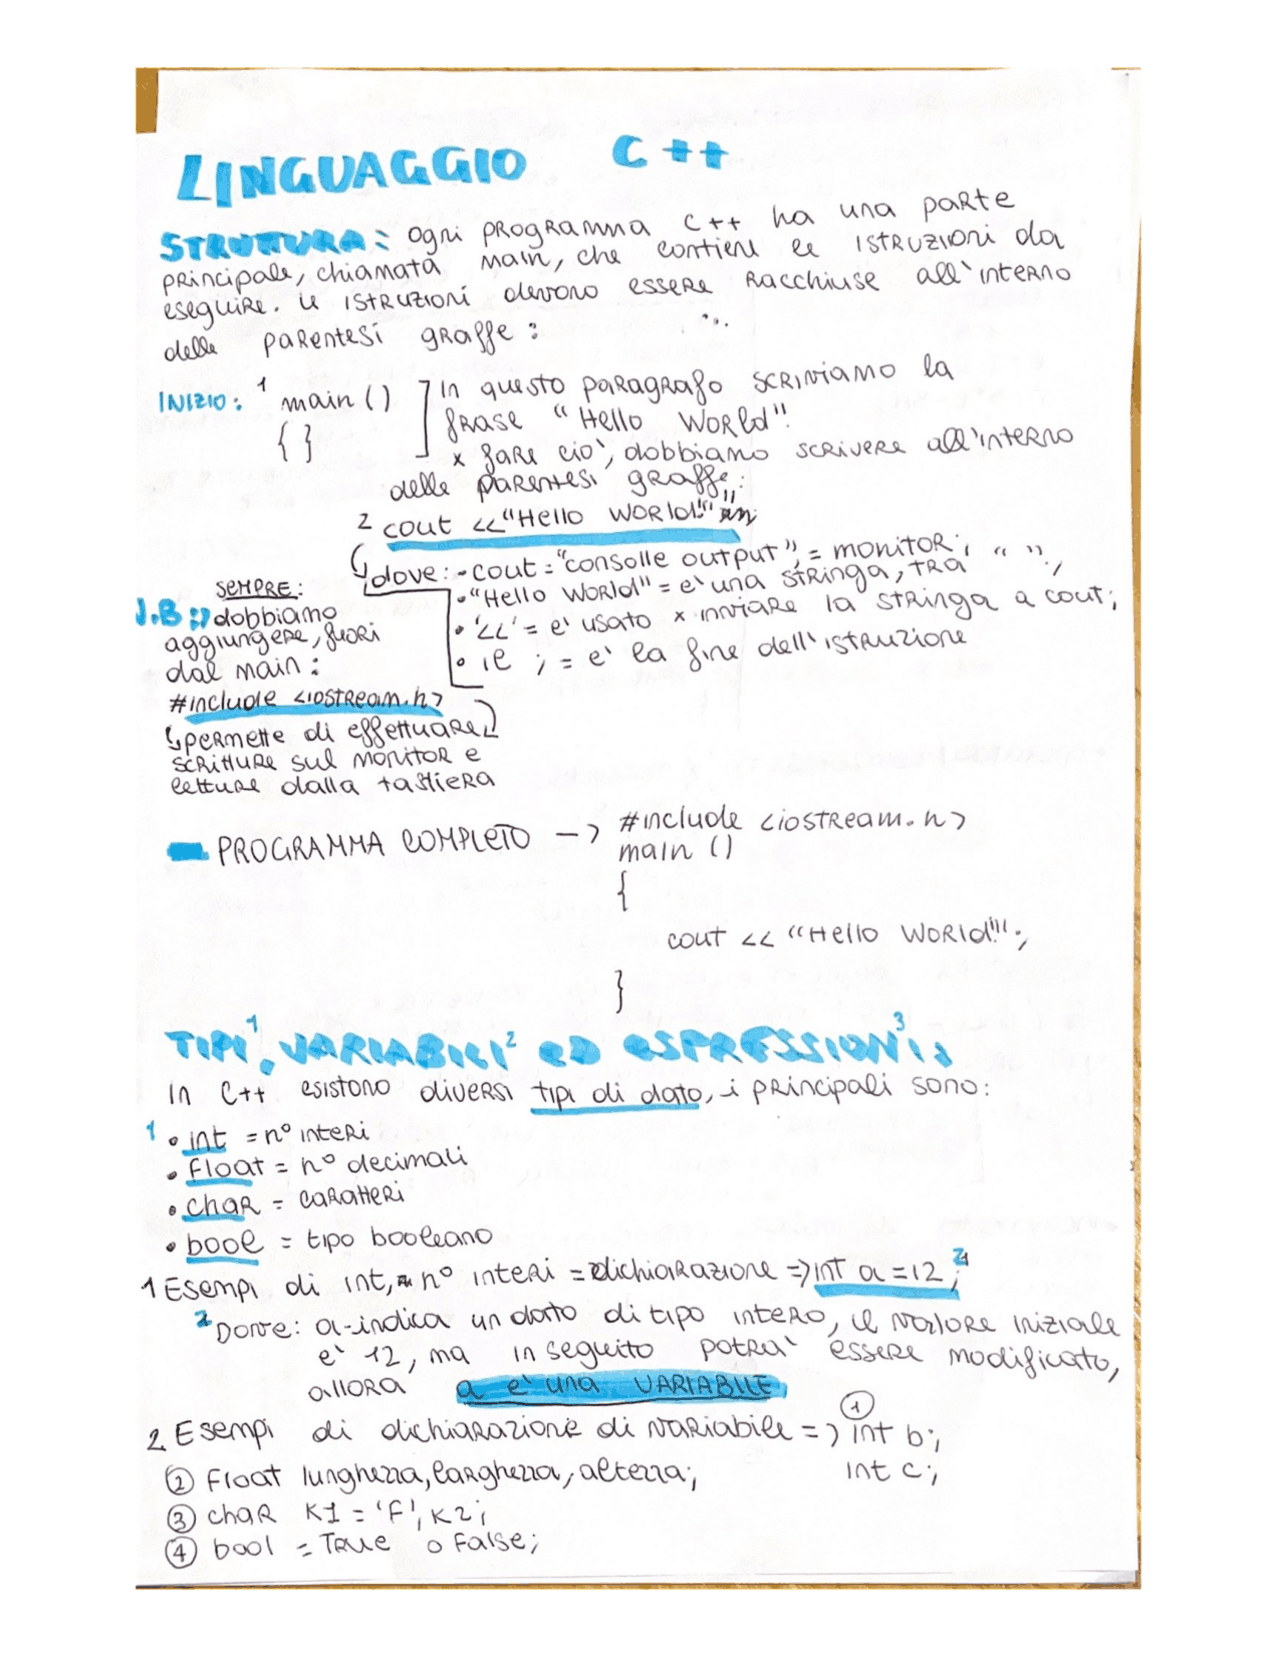 LINGUAGGIO C++
STRUTTURA: ogni programma C++ ha una parte
principale, chiamata main, che contiene le istruzioni da
eseguire. Le istruzioni devono essere racchiuse all'interno
delle parentesi graffe:
INIZIO: 1 main () ] In questo paragrafo scriviamo la
{ } frase "Hello World"!
x fare ciò, dobbiamo scrivere all'interno
delle parentesi graffe:
2 cout <<"Hello World!";
dove: - cout = "consolle output", = monitor;
• "Hello World" = è una stringa, tra " ";
• '<<' = è usato x inviare la stringa a cout;
• il ; = è la fine dell'istruzione
SEMPRE:
N.B.: dobbiamo
aggiungere, fuori
dal main:
#include <iostream.h>
↳ permette di effettuare
scritture sul monitor e
letture dalla tastiera
PROGRAMMA COMPLETO -> #include <iostream.h>
main ()
{
cout << "Hello World!!";
}
TIPI1, VARIABILI2 ED ESPRESSIONI3:
In C++ esistono diversi tipi di dato, i principali sono:
1 • int = n° interi
• Float = n° decimali
• char = caratteri
• bool = tipo booleano
1 Esempi di int, n° interi = dichiarazione => int a = 12; 2
2 Dove: a-indica un dato di tipo intero, il valore iniziale
è 12, ma in seguito potrà essere modificato,
allora a è una VARIABILE
2 Esempi di dichiarazione di variabile => ① int b;
int c;
② Float lunghezza, larghezza, altezza;
③ char K1 = 'F', K2;
④ bool = True o False;